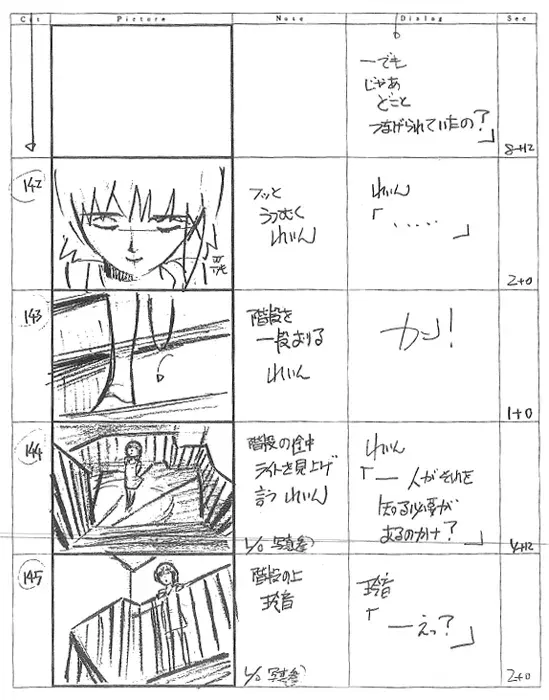 Cut Picture Note Dialog Sec
―でも
じゃあ
どこと
つなげられていたの?」
8+12
142
フッと
うつむく
れいん
れいん
「.....
」
2+0
143
階段を
一段おりる
れいん
カン!
1+0
144
階段の途中
ライトを見上げ
言うれいん
れいん
「―人がそれを
知る必要が
あるのかナ?」
4+12
145
階段の上
玲音
玲音
「―えっ?」
2+0